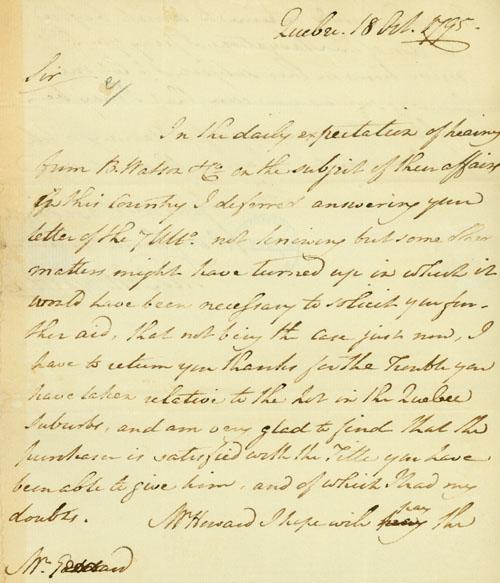 Quebec. 18 Oct. 1795.
Sir
In the daily expectation of hearing
from B. Watson & Co on the subject of their affairs
in this Country I deferred answering your
letter of the 7 Ulto. not knowing but some other
matters might have turned up in which it
would have been necessary to solicit your fur-
ther aid, that not being the case just now, I
have to return you thanks for the Trouble you
have taken relative to the Lot in the Quebec
Suburbs, and am very glad to find that the
purchaser is satisfied with the Title you have
been able to give him, and of which I had my
doubts. Mr Howard I hope will pay the
Mr.